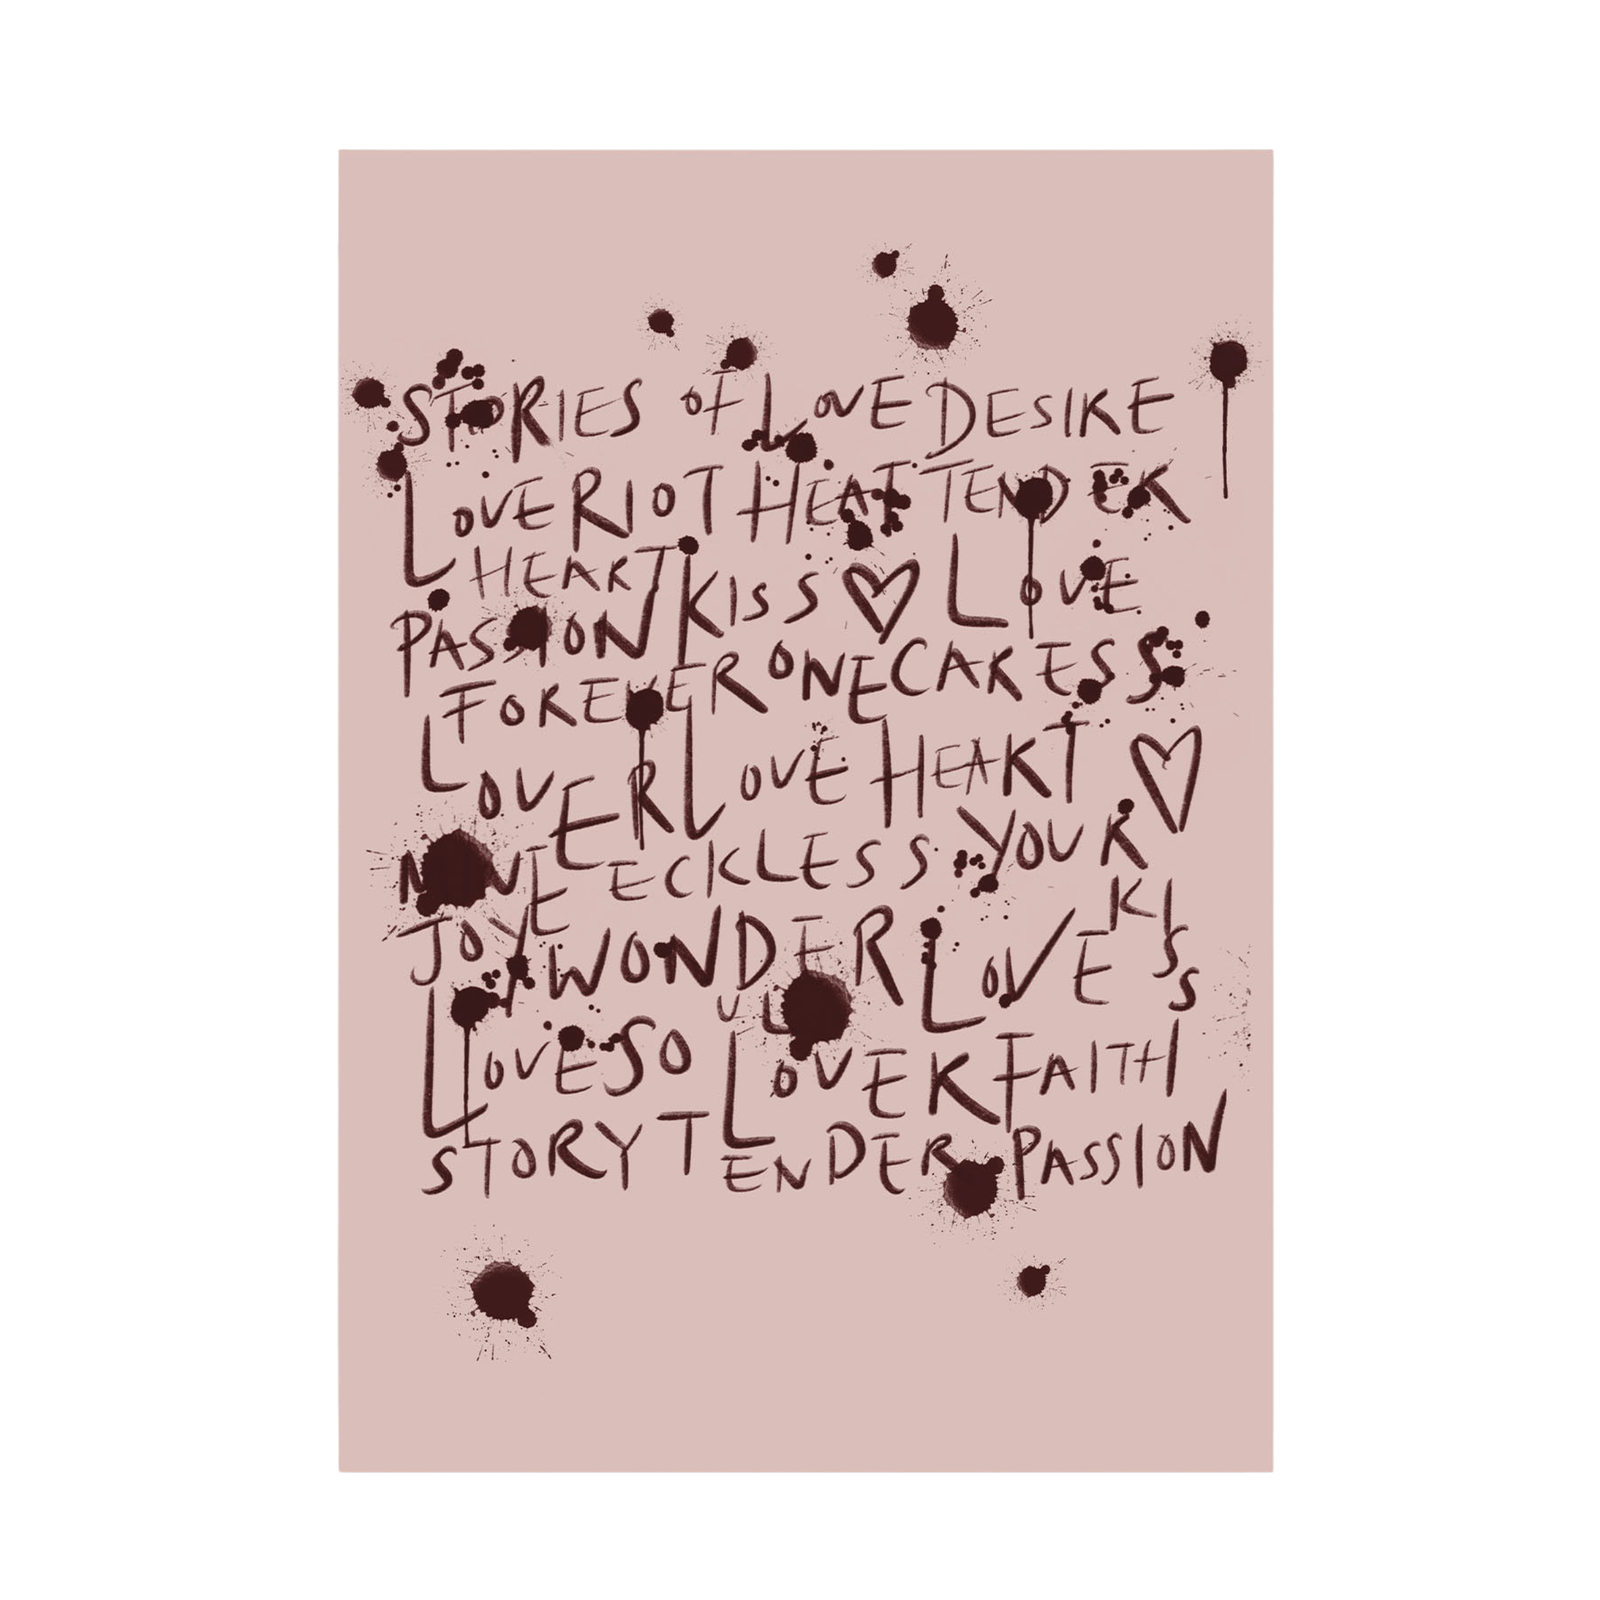 STORIES OF LOVE DESIRE
LOVE RIOT HEAT TENDER
HEART KISS ♡ LOVE
PASSION
FOREVER ONE CARESS
LOVER LOVE HEART ♡
ECKLESS YOUR
JOY WONDER LOVE KISS
LOVE SOUL LOVER FAITH
STORY TENDER PASSION